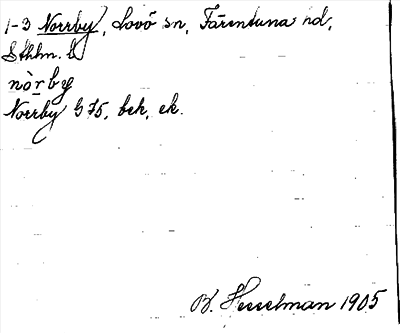 1-3 Norrby, Lovö sn, Färentuna hd,
Sthlm. l.
nòrby
Norrby G 75, bek, ek.
B. Hesselman 1905